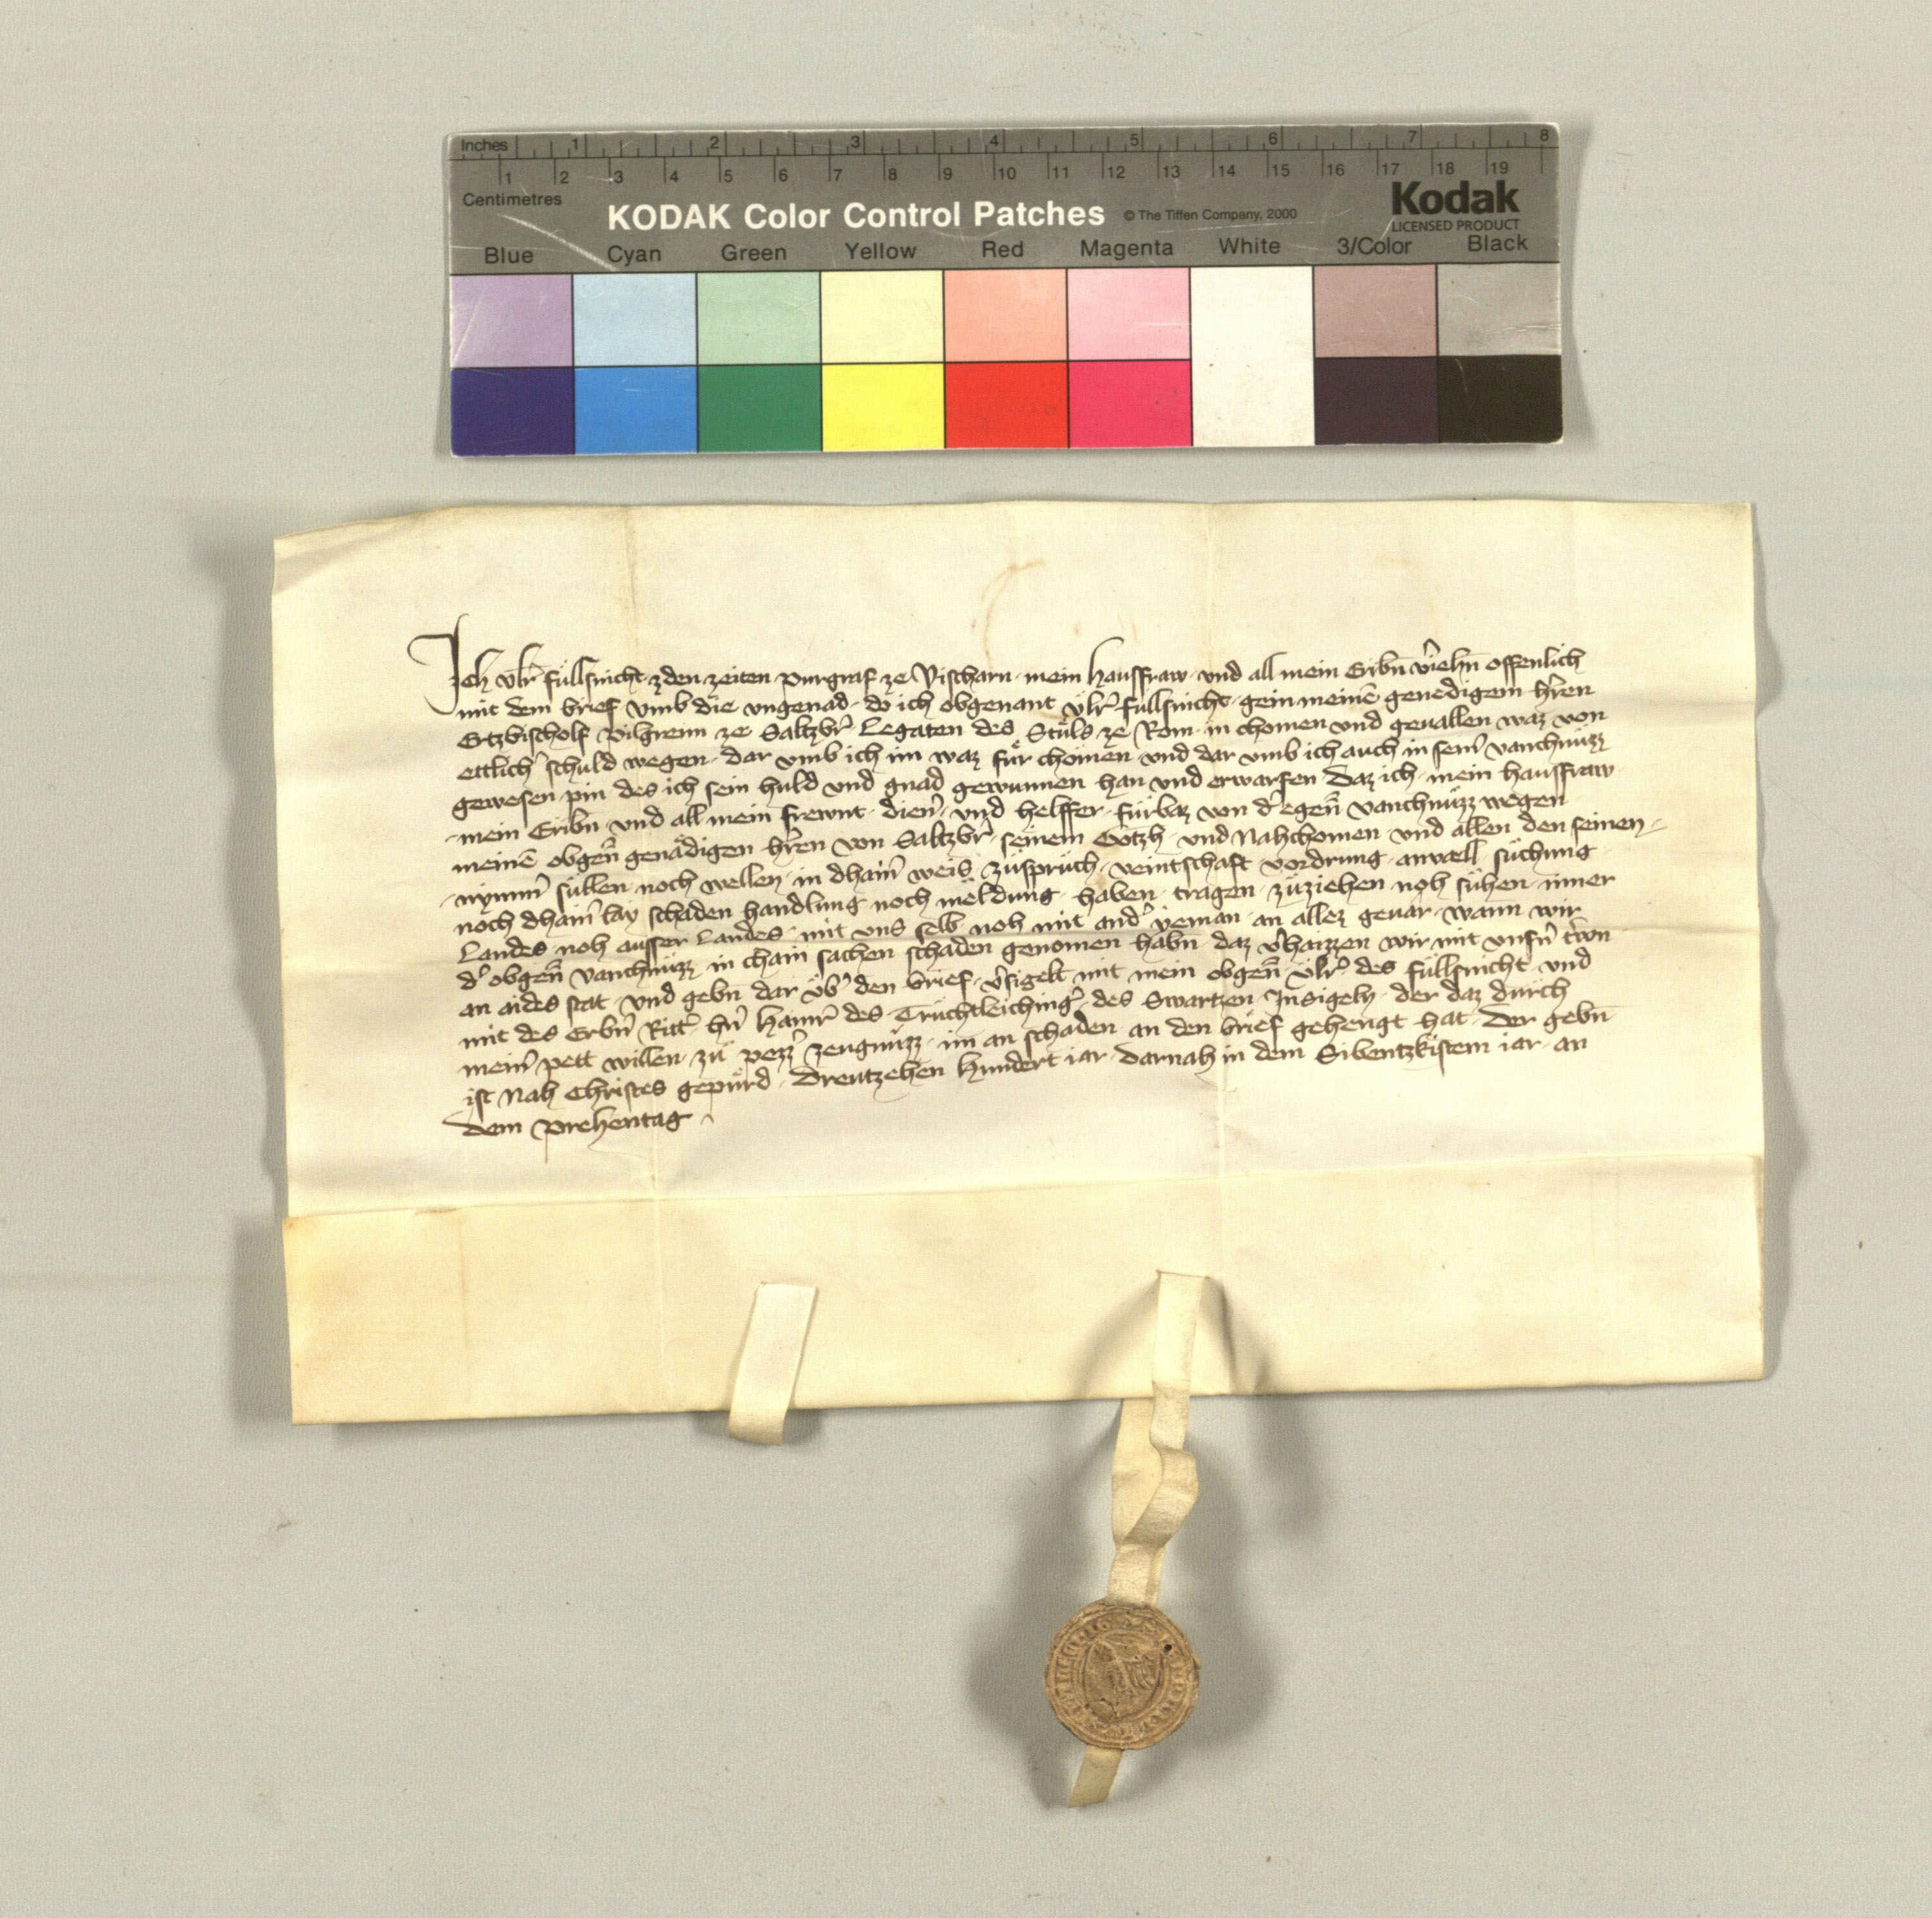 Inches 1 2 3 4 5 6 7 8
1 2 3 4 5 6 7 8 9 10 11 12 13 14 15 16 17 18 19
Centimetres
KODAK Color Control Patches © The Tiffen Company, 2000 Kodak
LICENSED PRODUCT
Blue Cyan Green Yellow Red Magenta White 3/Color Black
Ich Vlr̄ füllsnicht · zden zeiten purgraf ze Vischarn · mein hausfraw · vnd all mein Eribn̄ v̄iehn̄ offenlich
mit dem brief vmb die vngenad · do ich obgenant Vlr̄ füllsnicht · gein meinē genedigem hr̄en
Ertzbischolf Pilgreim ze Saltzbr̄ Legaten des Stůls ze Rom · in chomen vnd geuallen waz von
ettlich̄ schuld wegen · dar vmb ich im waz für chömen · vnd dar vmb ich auch in sein̄ vanchnüzz
gewesen pin des ich sein huld vnd gnad gewunnen han vnd erwarfen daz ich · mein hausfraw
mein Eribn̄ · vnd all mein frewnt · dien̄ · vnd helffer · fürbaz von d̄ egen̄ vanchnüzz wegen
meinē obgen̄ genädigen hr̄en von Saltzbr̄ · seinem Gotzh · vnd Nahchomen · vnd allen den seinen
nymm̄ süllen noch wellen · in dhain̄ weis · züsprüch · veintschaft vordrung · anuall süchung
noch dhain̄ lay schaden handlung noch meldung · haben · tragen · züziehen noh sühen · inner
Landes noh ausser Landes · mit vns selb noh mit and̄ yeman · an allez geuar · wann wir
d̄ obgen̄ vanchnüzz in chain sachen schaden genomen habn̄ daz v̄haizzen wir mit vnsn̄ tr̄wn
an aides stat · vnd gebn̄ dar üb̄ den brief · v̄sigelt mit mein obgen̄ Vlr̄ des füllsnicht · vnd
mit des Erbn̄ Ritt̄ · hn̄ Hainr̄ des Truchtleichinḡ · des Swartzen Insigeln · der daz durch
mein̄ pett willen · zü pezz̄ zeugnüzz · im an schaden an den brief gehengt hat · Der gebn̄
ist Nah Christes gepürd · Dreutzehen Hundert iar · darnah in dem Sibentzkistem iar · an
dem prehentag